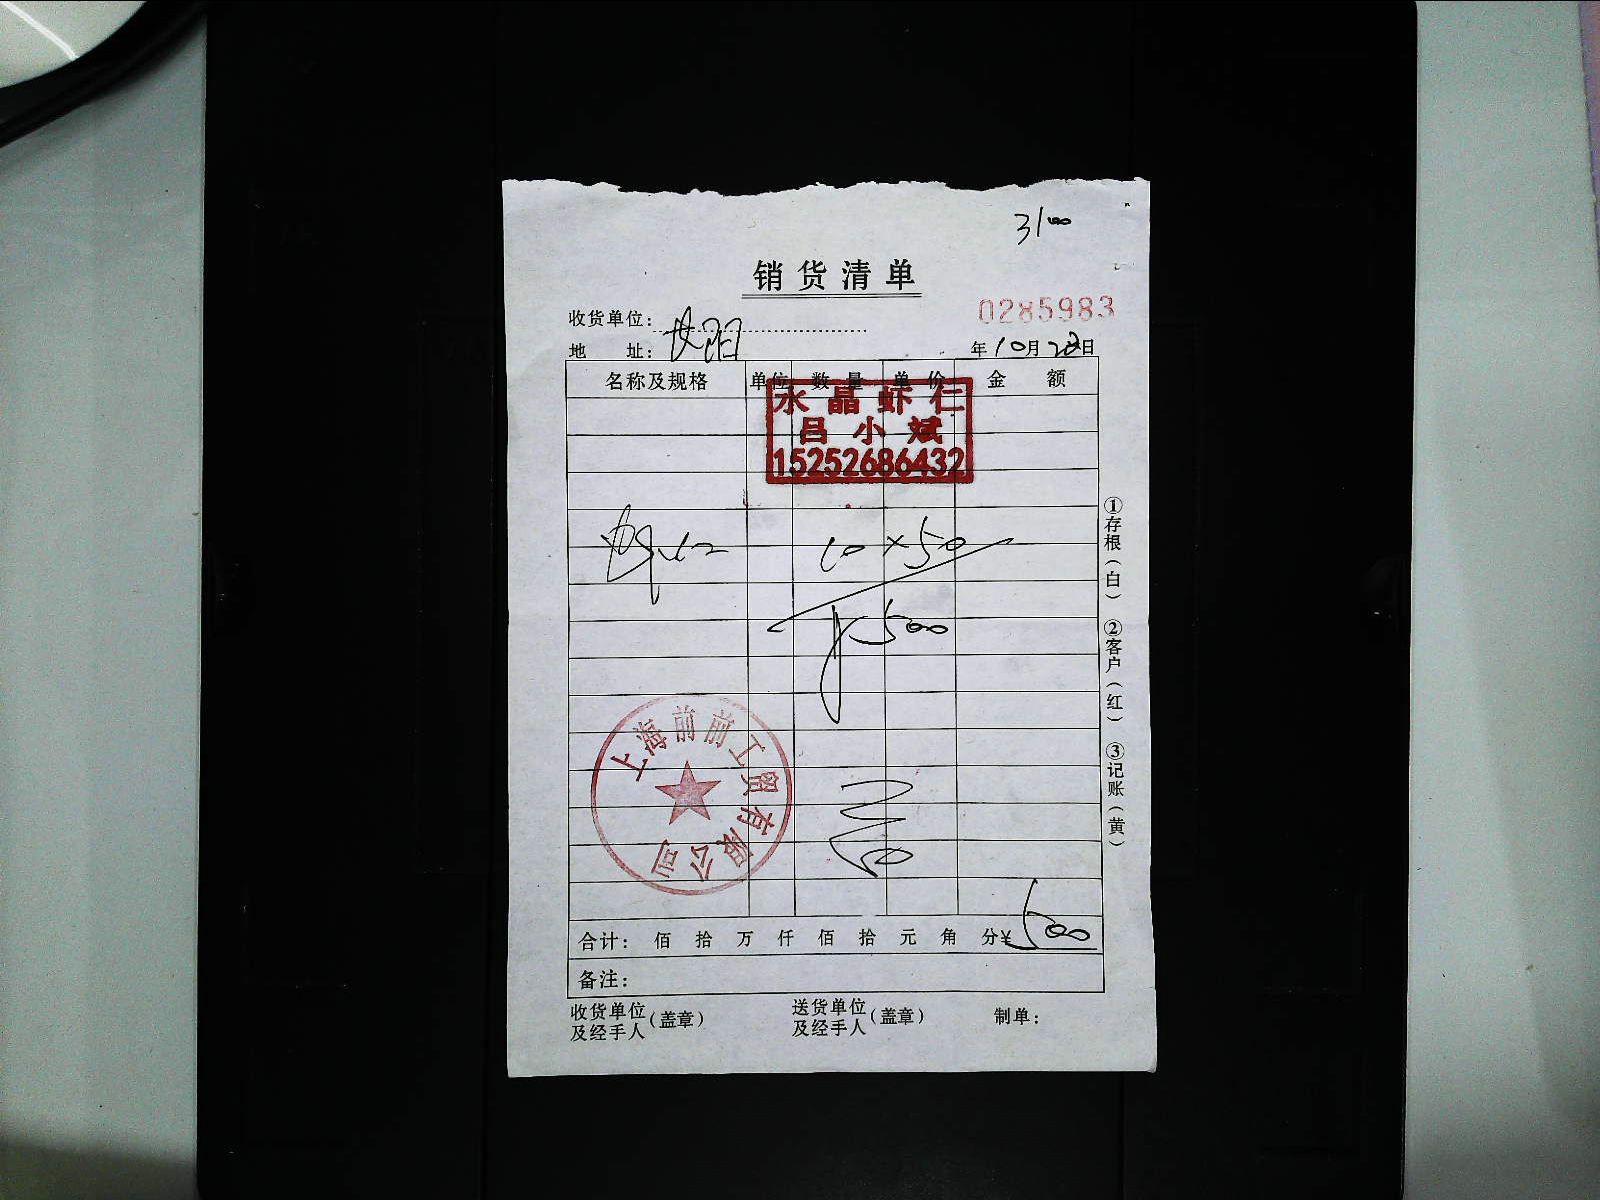 3100
销货清单
0285983
收货单位：
地 址：
年10月28日
名称及规格 单位 数量 单价 金额
水晶虾仁
吕小斌
15252686432
虾仁 10×50
500
上海前前工贸有限公司
合计： 佰 拾 万 仟 佰 拾 元 角 分¥500
备注：
收货单位及经手人（盖章） 送货单位及经手人（盖章） 制单：
①存根（白） ②客户（红） ③记账（黄）